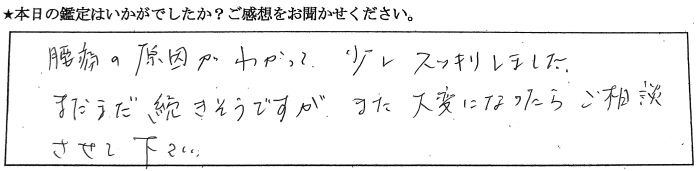 ★本日の鑑定はいかがでしたか？ご感想をお聞かせください。
腰痛の原因がわかって、少しスッキリしました。
まだまだ続きそうですが、また大変になったらご相談
させて下さい。